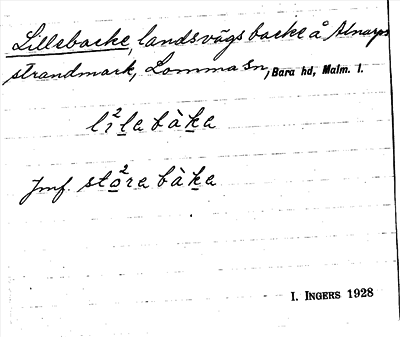 Lillebacke, landsvägsbacke å Alnarps
strandmark, Lomma sn, Bara hd, Malm. l.
lì²lebàke
Jmf. stò²rebàke
I. INGERS 1928